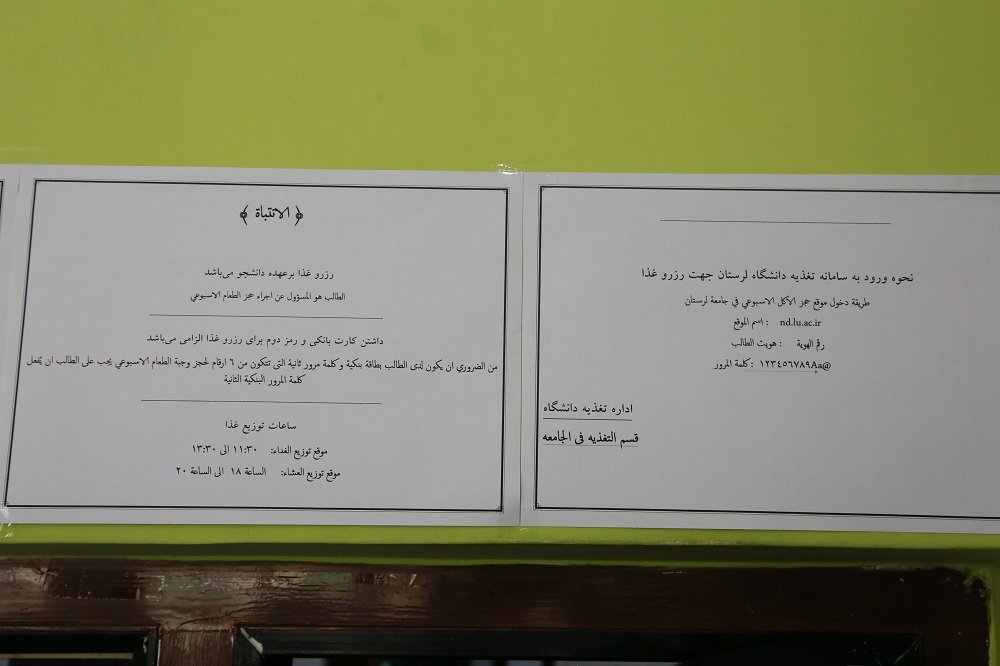 ﴿ الانتباة ﴾
رزرو غذا برعهده دانشجو می‌باشد
الطالب هو المسؤول عن اجراء حجز الطعام الاسبوعي
داشتن کارت بانکی و رمز دوم برای رزرو غذا الزامی می‌باشد
من الضروري ان يكون لدى الطالب بطاقة بنكية وكلمة مرور ثانية التي تتكون من ٦ ارقام لحجز وجبة الطعام الاسبوعي يجب على الطالب ان يُفعل
كلمة المرور البنكية الثانية
ساعات توزیع غذا
موقع توزيع الغداء: ١١:٣٠ الى ١٣:٣٠
موقع توزيع العشاء: الساعة ١٨ الى الساعة ٢٠
نحوه ورود به سامانه تغذیه دانشگاه لرستان جهت رزرو غذا
طريقة دخول موقع حجز الاكل الاسبوعي في جامعة لرستان
اسم الموقع : nd.lu.ac.ir
رقم الهوية : هويت الطالب
كلمة المرور: ١٢٣٤٥٦٧٨٩Aa@
اداره تغذیه دانشگاه
قسم التغذيه فى الجامعه